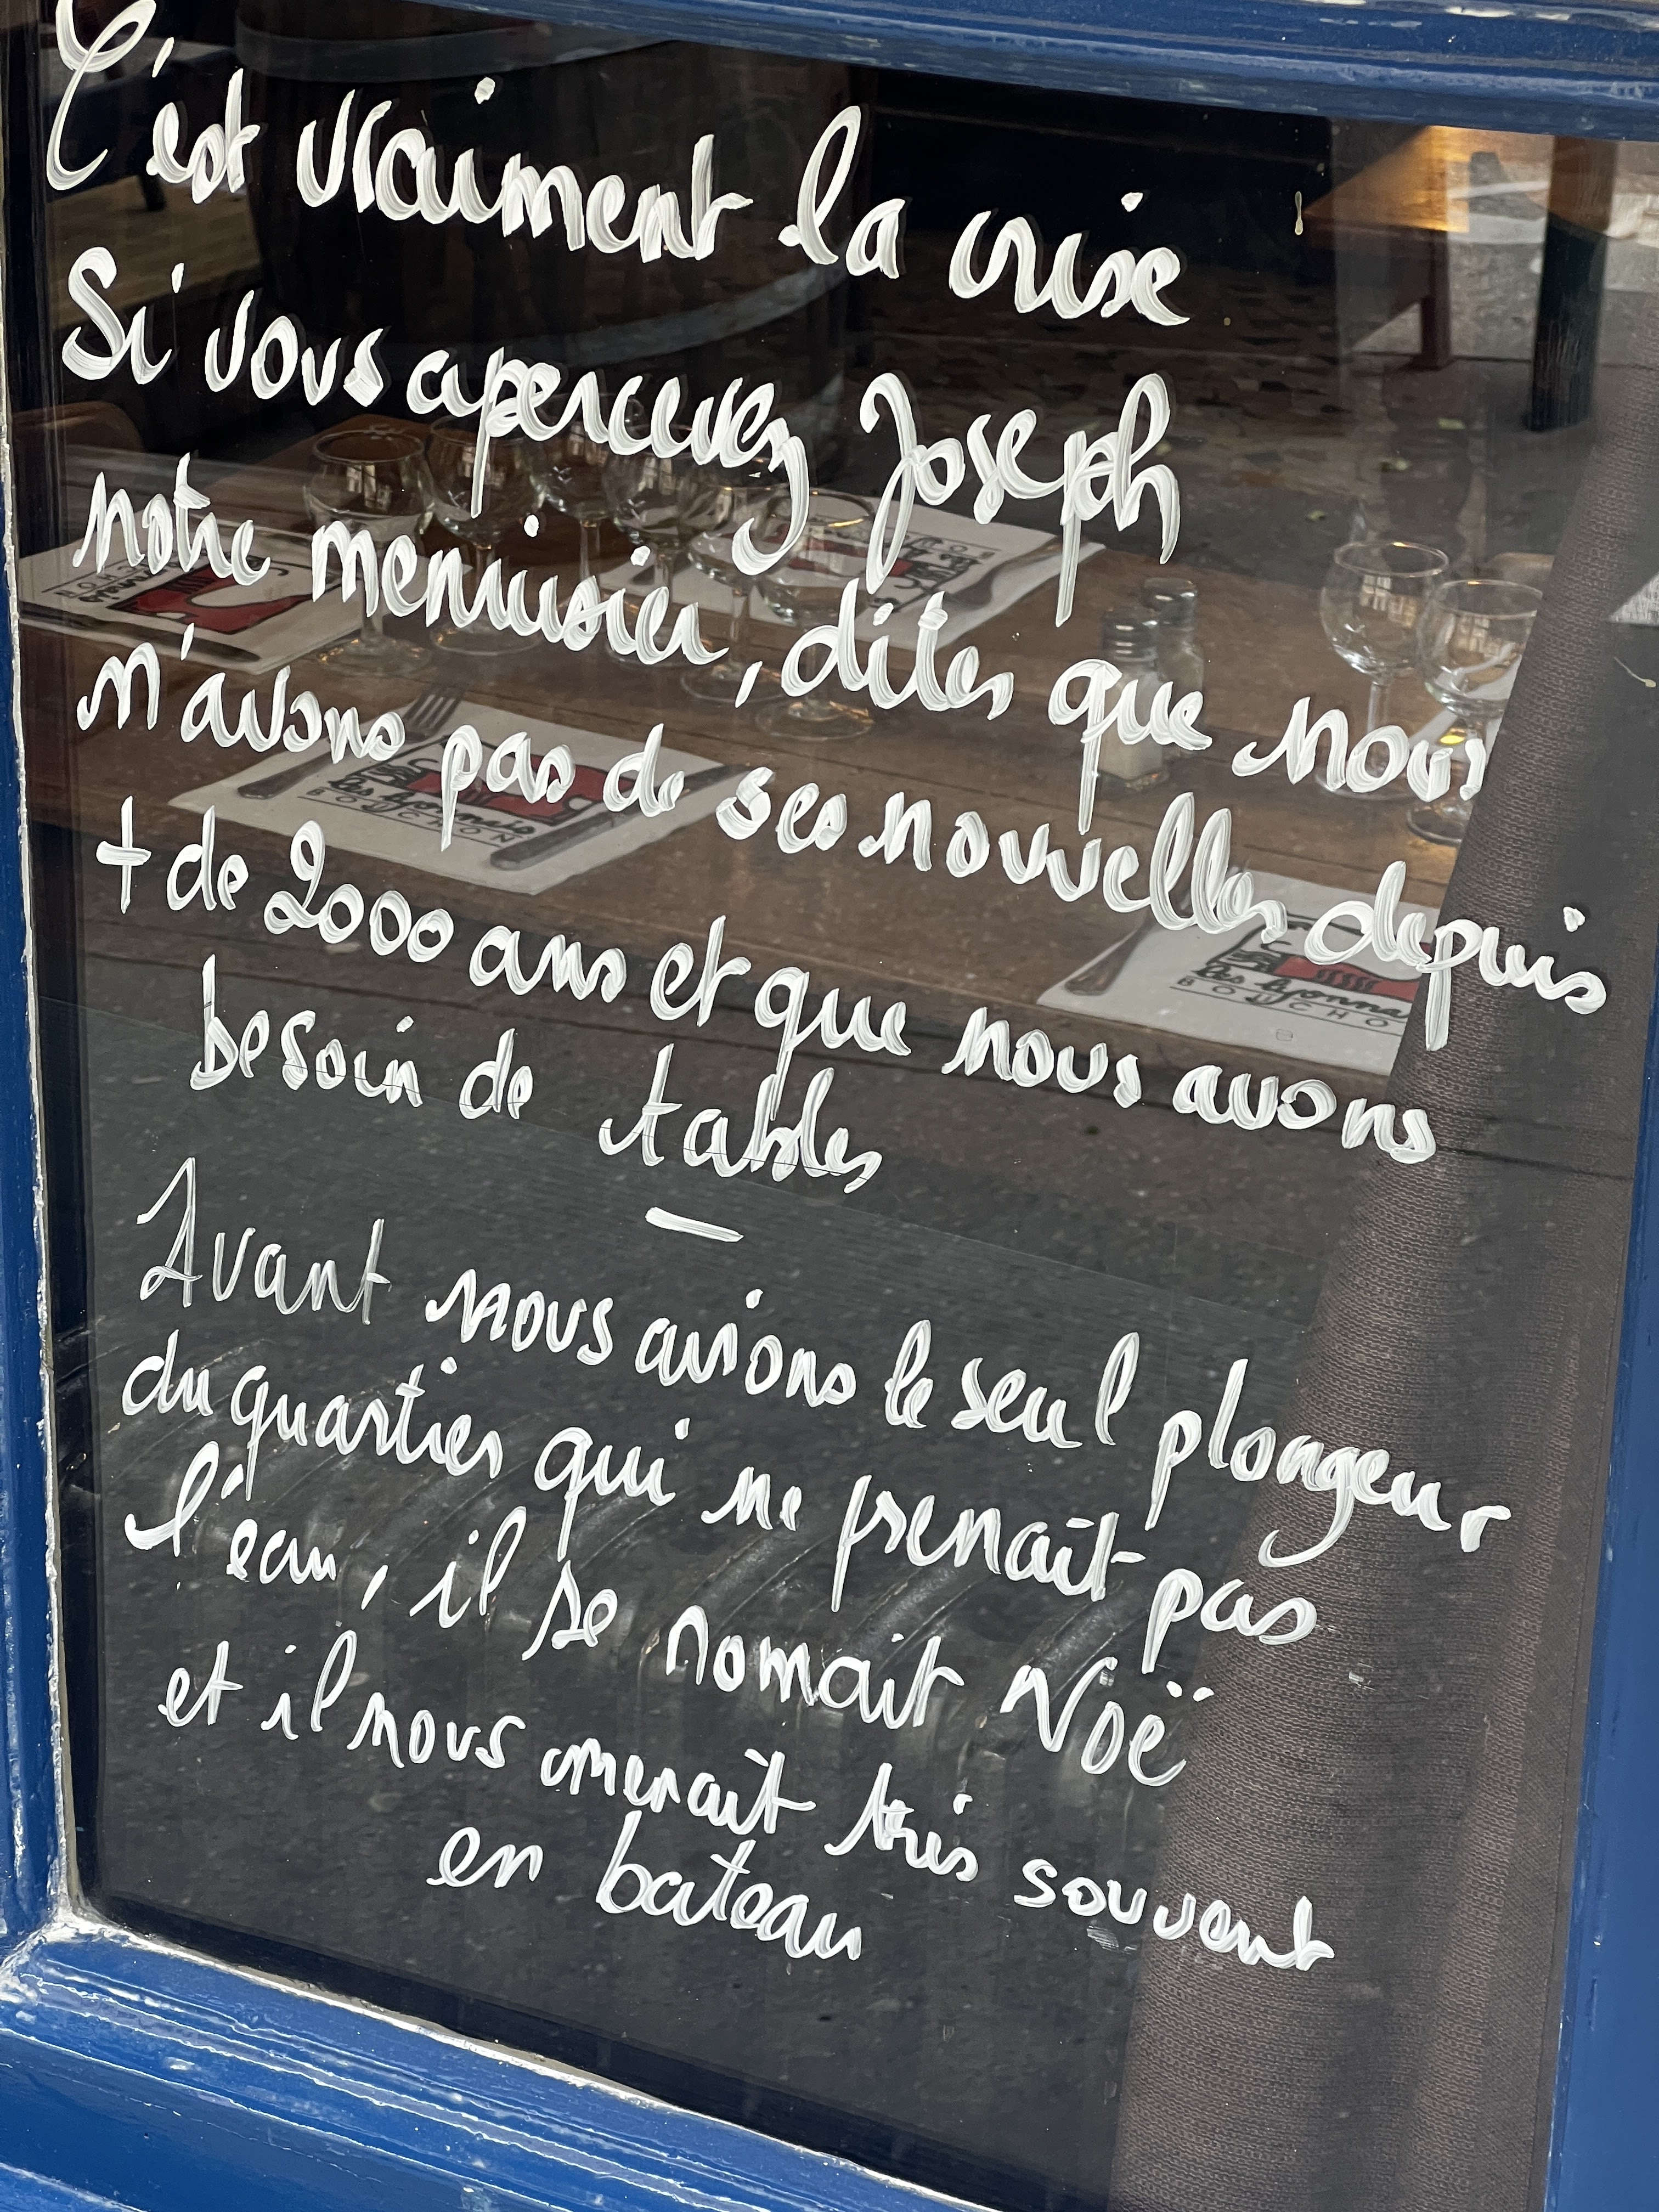 C'est vraiment la crise
Si vous apercevez Joseph
notre menuisier, dites que nous
n'avons pas de ses nouvelles depuis
+ de 2000 ans et que nous avons
besoin de tables
—
Avant nous avions le seul plongeur
du quartier qui ne prenait pas
l'eau, il se nomait Noë
et il nous menait très souvent
en bateau
les lyonnais
BOUCHON